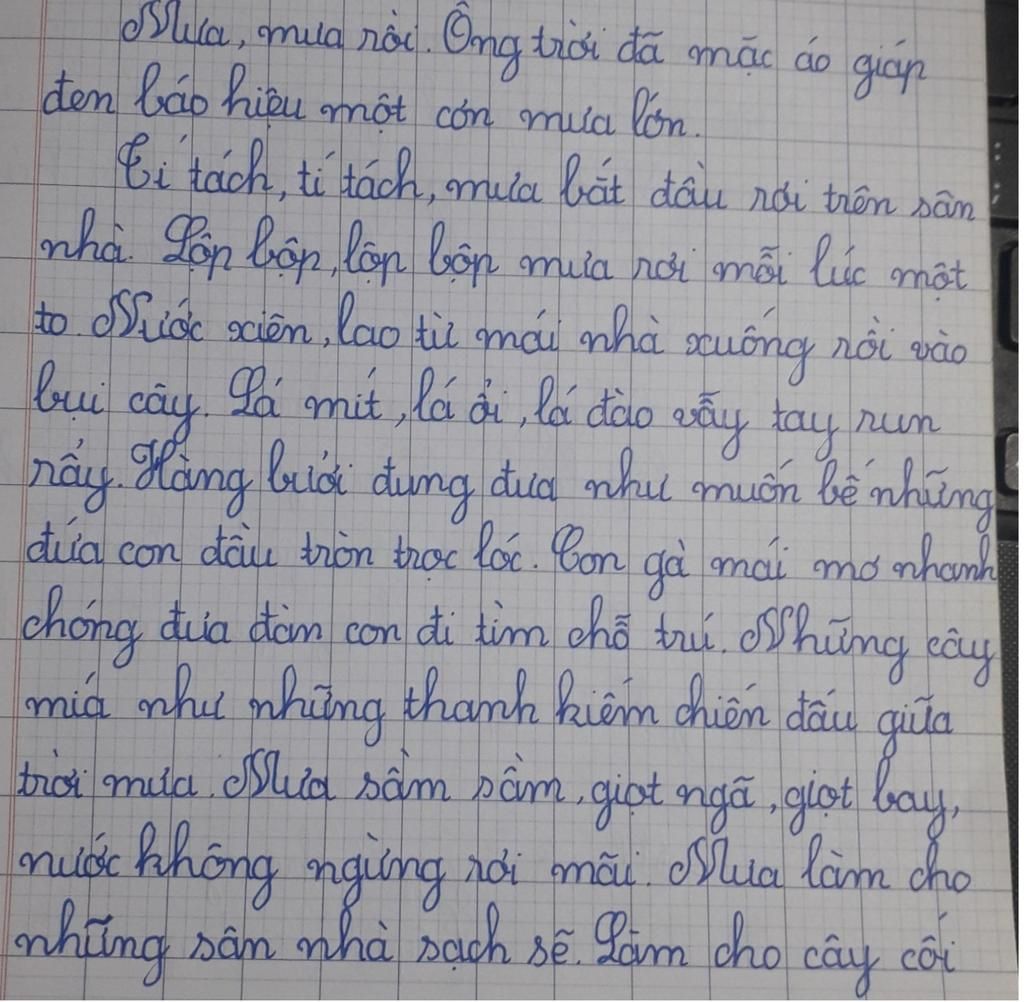 Mưa, mưa rồi. Ông trời đã mặc áo giáp
đen báo hiệu một cơn mưa lớn.
Tí tách, tí tách, mưa bắt đầu rơi trên sân
nhà. Lộp bộp, lộp bộp mưa rơi mỗi lúc một
to. Nước xiên, lao từ mái nhà xuống rồi vào
bụi cây. Lá mít, lá ổi, lá đào vẫy tay run
rẩy. Hàng bưởi đung đưa như muốn bế những
đứa con đầu tròn trọc lóc. Con gà mái mơ nhanh
chóng đưa đàn con đi tìm chỗ trú. Những cây
mía như những thanh kiếm chiến đấu giữa
trời mưa. Mưa sầm sầm, giọt ngã, giọt bay,
nước không ngừng rơi mãi. Mưa làm cho
những sân nhà sạch sẽ. Làm cho cây cối